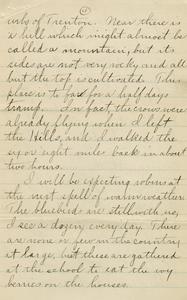 urbs of Trenton. Near there is
a hill which might almost be
called a mountain, but its
sides are not very rocky and all
but the top is cultivated. This
place is to far for a half days
tramp. In fact, the crows were
already flying when I left
the Hills, and I walked the
six or eight miles back in about
two hours.
I will be expecting robins at
the next spell of warm weather.
The bluebirds are still with us,
I see a dozen every day. There
are none or few in the country
at large, but these are gathered
at the school to eat the ivy
berries on the houses.